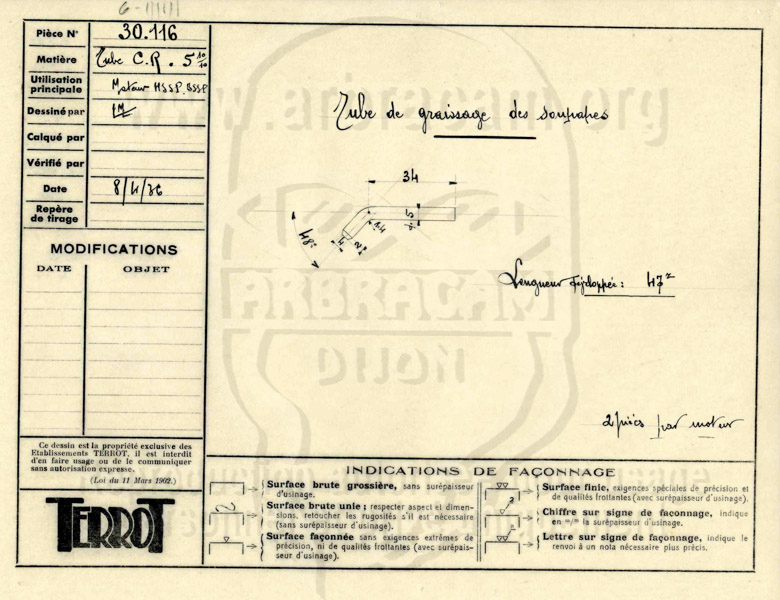 www.arbracam.org
Pièce N° 30.116
Matière Tube C.R. 5 10/10
Utilisation principale Moteur HSSP. BSSP
Dessiné par
Calqué par
Vérifié par
Date 8/4/36
Repère de tirage
MODIFICATIONS
DATE OBJET
Tube de graissage des soupapes
34
48°
4
14
5
Longueur développée: 47
2 pièces par moteur
ARBRACAM
DIJON
Ce dessin est la propriété exclusive des
Etablissements TERROT, il est interdit
d'en faire usage ou de le communiquer
sans autorisation expresse.
(Loi du 11 Mars 1902.)
TERROT
INDICATIONS DE FAÇONNAGE
Surface brute grossière, sans surépaisseur
d'usinage.
Surface brute unie; respecter aspect et dimen-
sions, retoucher les rugosités s'il est nécessaire
(sans surépaisseur d'usinage).
Surface façonnée sans exigences extrêmes de
précision, ni de qualités frottantes (avec surépais-
seur d'usinage).
Surface finie, exigences spéciales de précision et
de qualités frottantes (avec surépaisseur d'usinage).
Chiffre sur signe de façonnage, indique
en m/m la surépaisseur d'usinage.
Lettre sur signe de façonnage, indique le
renvoi à un nota nécessaire plus précis.